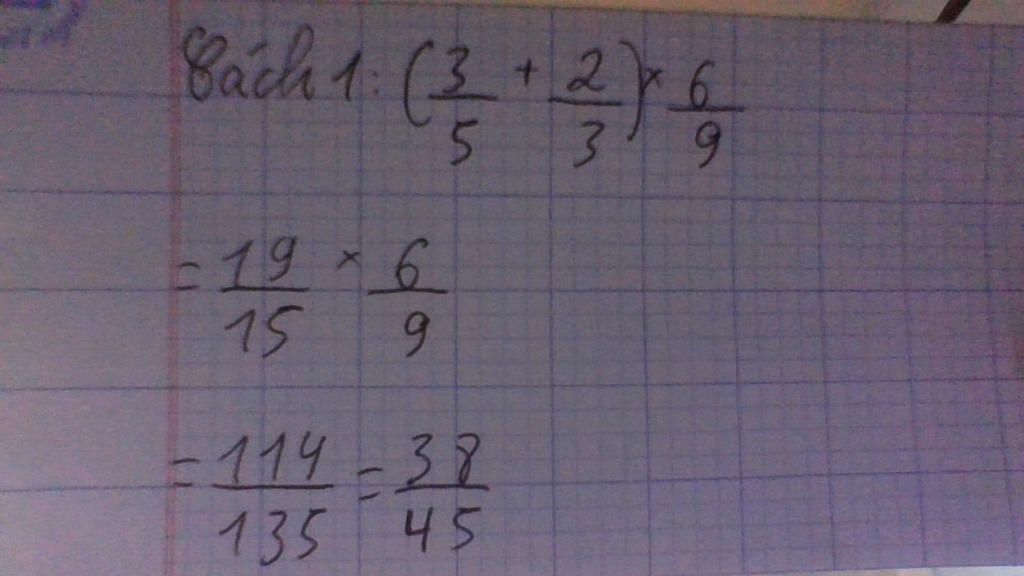 Cách 1: (3/5 + 2/3) × 6/9
= 19/15 × 6/9
= 114/135 = 38/45